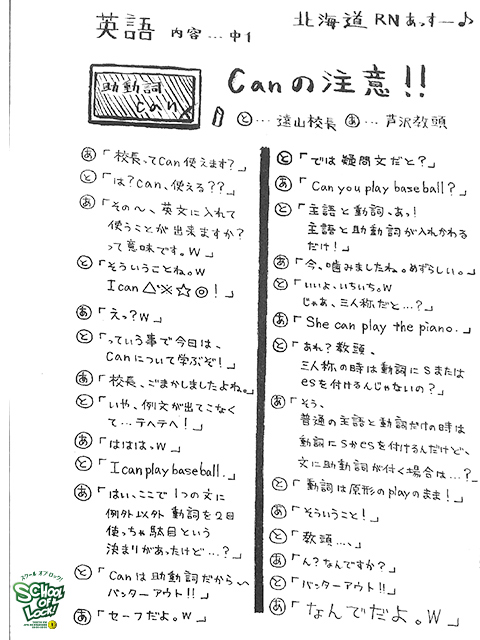 英語 内容…中1
北海道 RNあっすー♪
助動詞
can
Canの注意!!
と…遠山校長 あ…芦沢教頭
あ「校長ってCan使えます?」
と「は?Can、使える??」
あ「その〜、英文に入れて
使うことが出来ますか?
って意味です。w」
と「そういうことね。w
I can △※☆◎!」
あ「えっ?w」
と「っていう事で今日は、
Canについて学ぶぞ!」
あ「校長、ごまかしましたよね。」
と「いや、例文が出てこなく
て…テヘテヘ!」
あ「ははは、w」
と「I can play baseball.」
あ「はい、ここで1つの文に
例外以外動詞を2回
使っちゃ駄目という
決まりがあったけど…?」
と「Canは助動詞だから〜
バッターアウト!!」
あ「セーフだよ。w」
と「では疑問文だと?」
あ「Can you play baseball?」
と「主語と動詞、あっ!
主語と助動詞が入れかわる
だけ!」
あ「今、噛みましたね。めずらしい。」
と「いいよ、いちいち。w
じゃあ、三人称だと…?」
あ「She can play the piano.」
と「あれ?教頭、
三人称の時は動詞にsまたは
esを付けるんじゃないの?」
あ「そう、
普通の主語と動詞だけの時は
動詞にsかesを付けるんだけど、
文に助動詞が付く場合は…?」
と「動詞は原形のplayのまま!」
あ「そういうこと!」
と「教頭…、」
あ「ん?なんですか?」
と「バッターアウト!!」
あ「なんでだよ。w」
スクール オブ ロック!
SCHOOL
OF
LOCK!